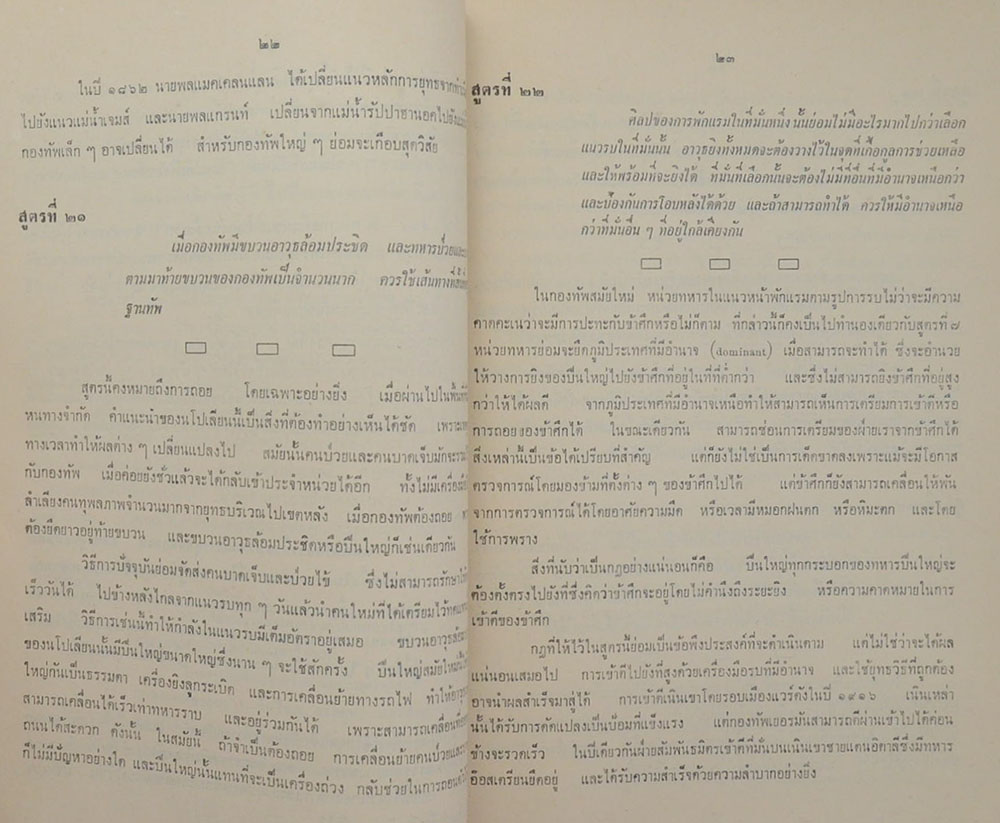 ๒๒
ในปี ๑๘๖๒ นายพลแมคเคลนแลน ได้เปลี่ยนแนวหลักการยุทธจาก
ไปยังแนวแม่น้ำเจมส์ และนายพลแกรนท์ เปลี่ยนจากแม่น้ำรัปปาฮานอคไปยัง
กองทัพเล็ก ๆ อาจเปลี่ยนได้ สำหรับกองทัพใหญ่ ๆ ย่อมจะเกือบสุดวิสัย
สูตรที่ ๒๑
เมื่อกองทัพมีขบวนอาวุธล้อมประชิด และทหารป่วย
ตามมาท้ายขบวนของกองทัพเป็นจำนวนมาก ควรใช้เส้นทาง
ฐานทัพ
สูตรนี้คงหมายถึงการถอย โดยเฉพาะอย่างยิ่ง เมื่อผ่านไปใน
หนทางจำกัด คำแนะนำของนโปเลียนนี้เป็นสิ่งที่ต้องทำอย่างเห็นได้ชัด
ทางเวลาทำให้ผลต่าง ๆ เปลี่ยนแปลงไป สมัยนั้นคนป่วยและคนบาดเจ็บมัก
กับกองทัพ เมื่อค่อยยังชั่วแล้วจะได้กลับเข้าประจำหน่วยได้อีก ทั้งไม่มี
ลำเลียงคนทุพลภาพจำนวนมากจากยุทธบริเวณไปเขตหลัง เมื่อกองทัพต้องถอย
ต้องยืดยาวอยู่ท้ายขบวน และขบวนอาวุธล้อมประชิดหรือปืนใหญ่ก็เช่นเดียวกัน
วิธีการปัจจุบันย่อมจัดส่งคนบาดเจ็บและป่วยไข้ ซึ่งไม่สามารถรักษา
เร็ววันได้ ไปข้างหลังไกลจากแนวรบทุก ๆ วันแล้วนำคนใหม่ที่ได้เตรียมไว้
เสริม วิธีการเช่นนี้ทำให้กำลังในแนวรบมีเต็มอัตราอยู่เสมอ ขบวนอาวุธ
ของนโปเลียนนั้นมีปืนใหญ่ขนาดใหญ่ซึ่งนาน ๆ จะใช้สักครั้ง ปืนใหญ่สมัยใหม่
ใหญ่กันเป็นธรรมดา เครื่องยิงลูกระเบิด และการเคลื่อนย้ายทางรถไฟ
สามารถเคลื่อนได้เร็วเท่าทหารราบ และอยู่ร่วมกันได้ เพราะสามารถเคลื่อน
ถนนได้สะดวก ดังนั้น ในสมัยนี้ ถ้าจำเป็นต้องถอย การเคลื่อนย้ายคนป่วย
ก็ไม่มีปัญหาอย่างใด และปืนใหญ่นั้นแทนที่จะเป็นเครื่องถ่วง กลับช่วยในการถอย
๒๓
สูตรที่ ๒๒
ศิลปของการพักแรมในที่มั่นหนึ่ง นั้นย่อมไม่มีอะไรมากไปกว่าเลือก
แนวรบในที่มั่นนั้น อาวุธยิงทั้งหมดจะต้องวางไว้ในจุดที่เกื้อกูลการช่วยเหลือ
และให้พร้อมที่จะยิงได้ ที่มั่นที่เลือกนั้นจะต้องไม่มีที่อื่นที่มีอำนาจเหนือกว่า
และป้องกันการโอบหลังได้ด้วย และถ้าสามารถทำได้ ควรให้มีอำนาจเหนือ
กว่าที่มั่นอื่น ๆ ที่อยู่ใกล้เคียงกัน
ในกองทัพสมัยใหม่ หน่วยทหารในแนวหน้าพักแรมตามรูปการรบไม่ว่าจะมีความ
คาดคะเนว่าจะมีการปะทะกับข้าศึกหรือไม่ก็ตาม ที่กล่าวนี้ก็คงเป็นไปทำนองเดียวกับสูตรที่ ๗
หน่วยทหารย่อมจะยึดภูมิประเทศที่มีอำนาจ (dominant) เมื่อสามารถจะทำได้ ซึ่งจะอำนวย
ให้วางการยิงของปืนใหญ่ไปยังข้าศึกที่อยู่ในที่ที่ต่ำกว่า และซึ่งไม่สามารถยิงข้าศึกที่อยู่สูง
กว่าให้ได้ผลดี จากภูมิประเทศที่มีอำนาจเหนือทำให้สามารถเห็นการเตรียมการเข้าตีหรือ
การถอยของข้าศึกได้ ในขณะเดียวกัน สามารถซ่อนการเตรียมของฝ่ายเราจากข้าศึกได้
สิ่งเหล่านี้เป็นข้อได้เปรียบที่สำคัญ แต่ก็ยังไม่ใช่เป็นการเด็ดขาดลงเพราะแม้จะมีโอกาส
ตรวจการณ์โดยมองข้ามที่ตั้งต่าง ๆ ของข้าศึกไปได้ แต่ข้าศึกก็ยังสามารถเคลื่อนให้พ้น
จากการตรวจการณ์ได้โดยอาศัยความมืด หรือเวลามีหมอกฝนตก หรือหิมะตก และโดย
ใช้การพราง
สิ่งที่นับว่าเป็นกฎอย่างแน่นอนก็คือ ปืนใหญ่ทุกกระบอกของทหารปืนใหญ่จะ
ต้องตั้งตรงไปยังที่ซึ่งคิดว่าข้าศึกจะอยู่โดยไม่คำนึงถึงระยะยิง หรือความคาดหมายในการ
เข้าตีของข้าศึก
กฎที่ให้ไว้ในสูตรนี้ย่อมเป็นข้อพึงประสงค์ที่จะดำเนินตาม แต่ไม่ใช่ว่าจะได้ผล
แน่นอนเสมอไป การเข้าตีไปยังที่สูงด้วยเครื่องมือรบที่มีอำนาจ และใช้ยุทธวิธีที่ถูกต้อง
อาจนำผลสำเร็จมาสู่ได้ การเข้าตีเนินเขาโดยรอบเมืองแวร์ดังในปี ๑๙๑๖ เนินเหล่า
นั้นได้รับการดัดแปลงเป็นป้อมที่แข็งแรง แต่กองทัพเยอรมันสามารถตีผ่านเข้าไปได้ค่อน
ข้างจะรวดเร็ว ในปีเดียวกันฝ่ายสัมพันธมิตรเข้าตีที่มั่นบนเนินเขาชายแดนอิตาลีซึ่งมีทหาร
ออสเตรียนยึดอยู่ และได้รับความสำเร็จด้วยความลำบากอย่างยิ่ง